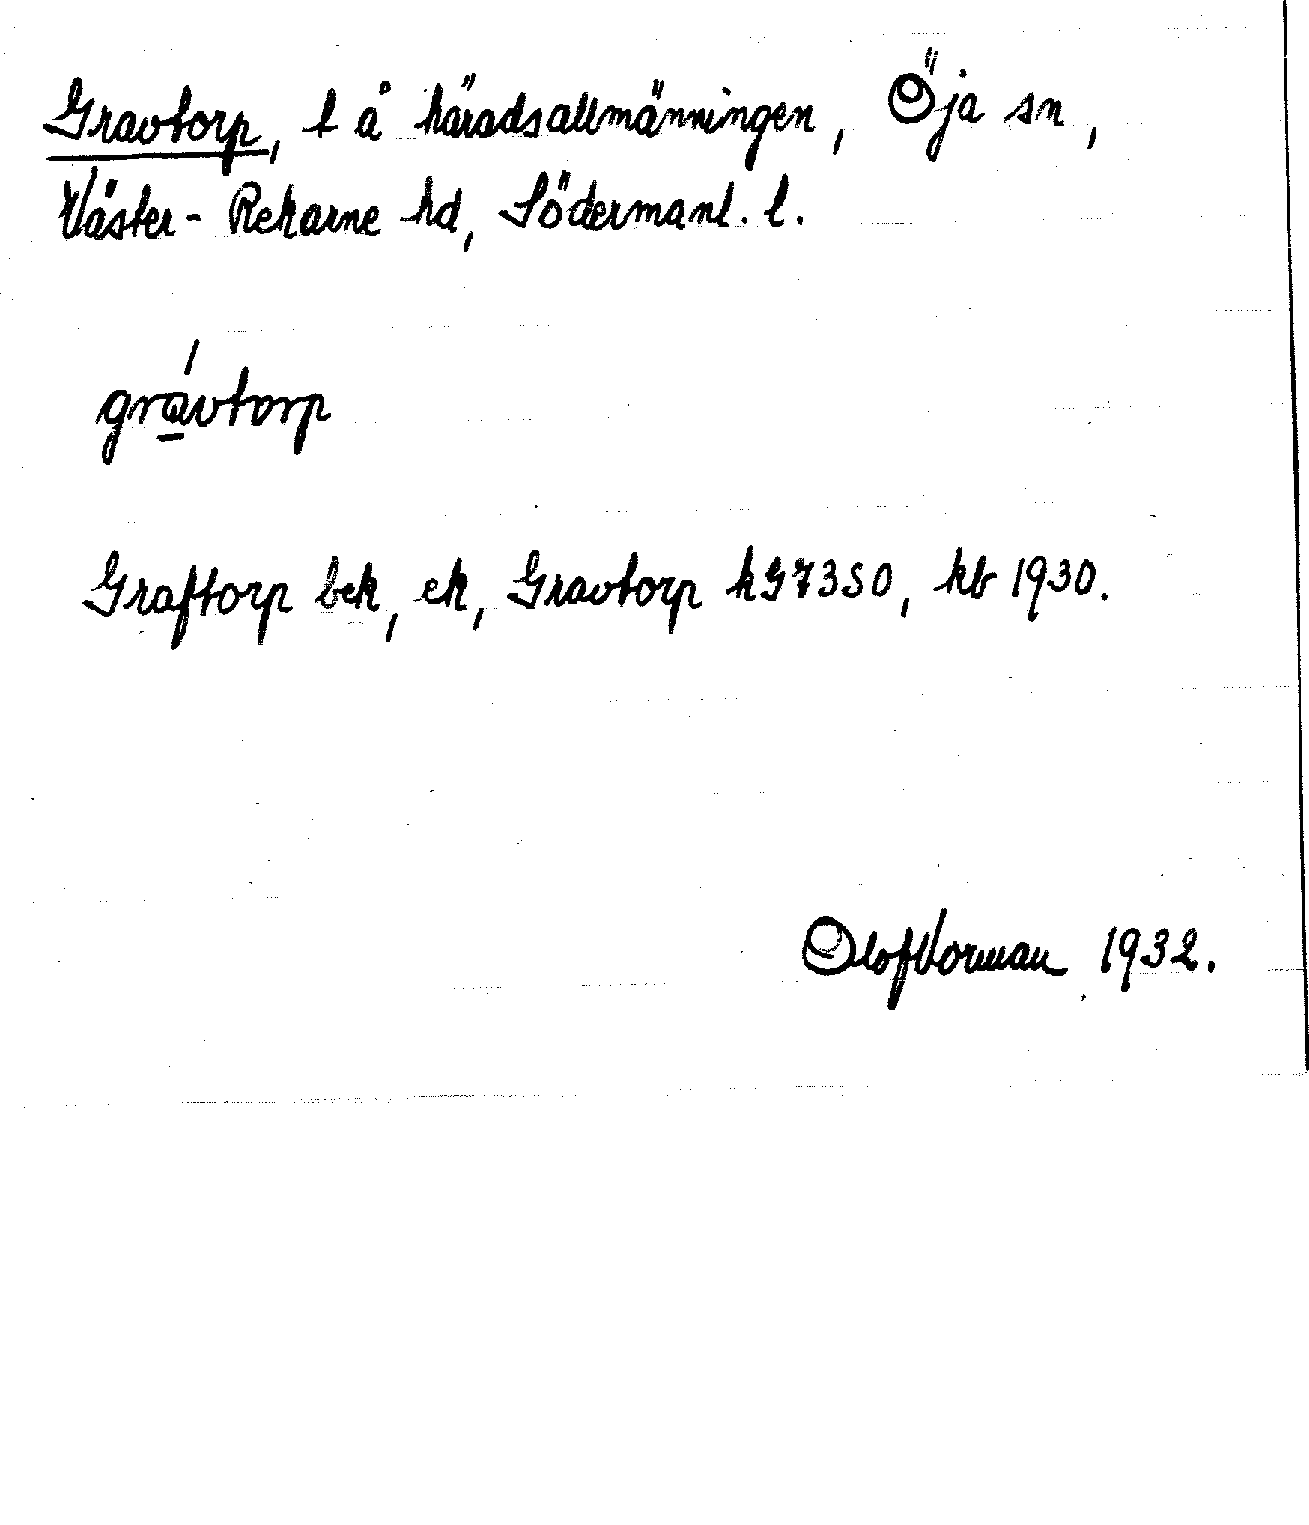 Gravtorp, t å häradsallmänningen, Öja sn,
Väster-Rekarne hd, Södermanl. l.
grávtorp
Graftorp bek, ek, Gravtorp kG7350, kb 1930.
Olof Vorman 1932.